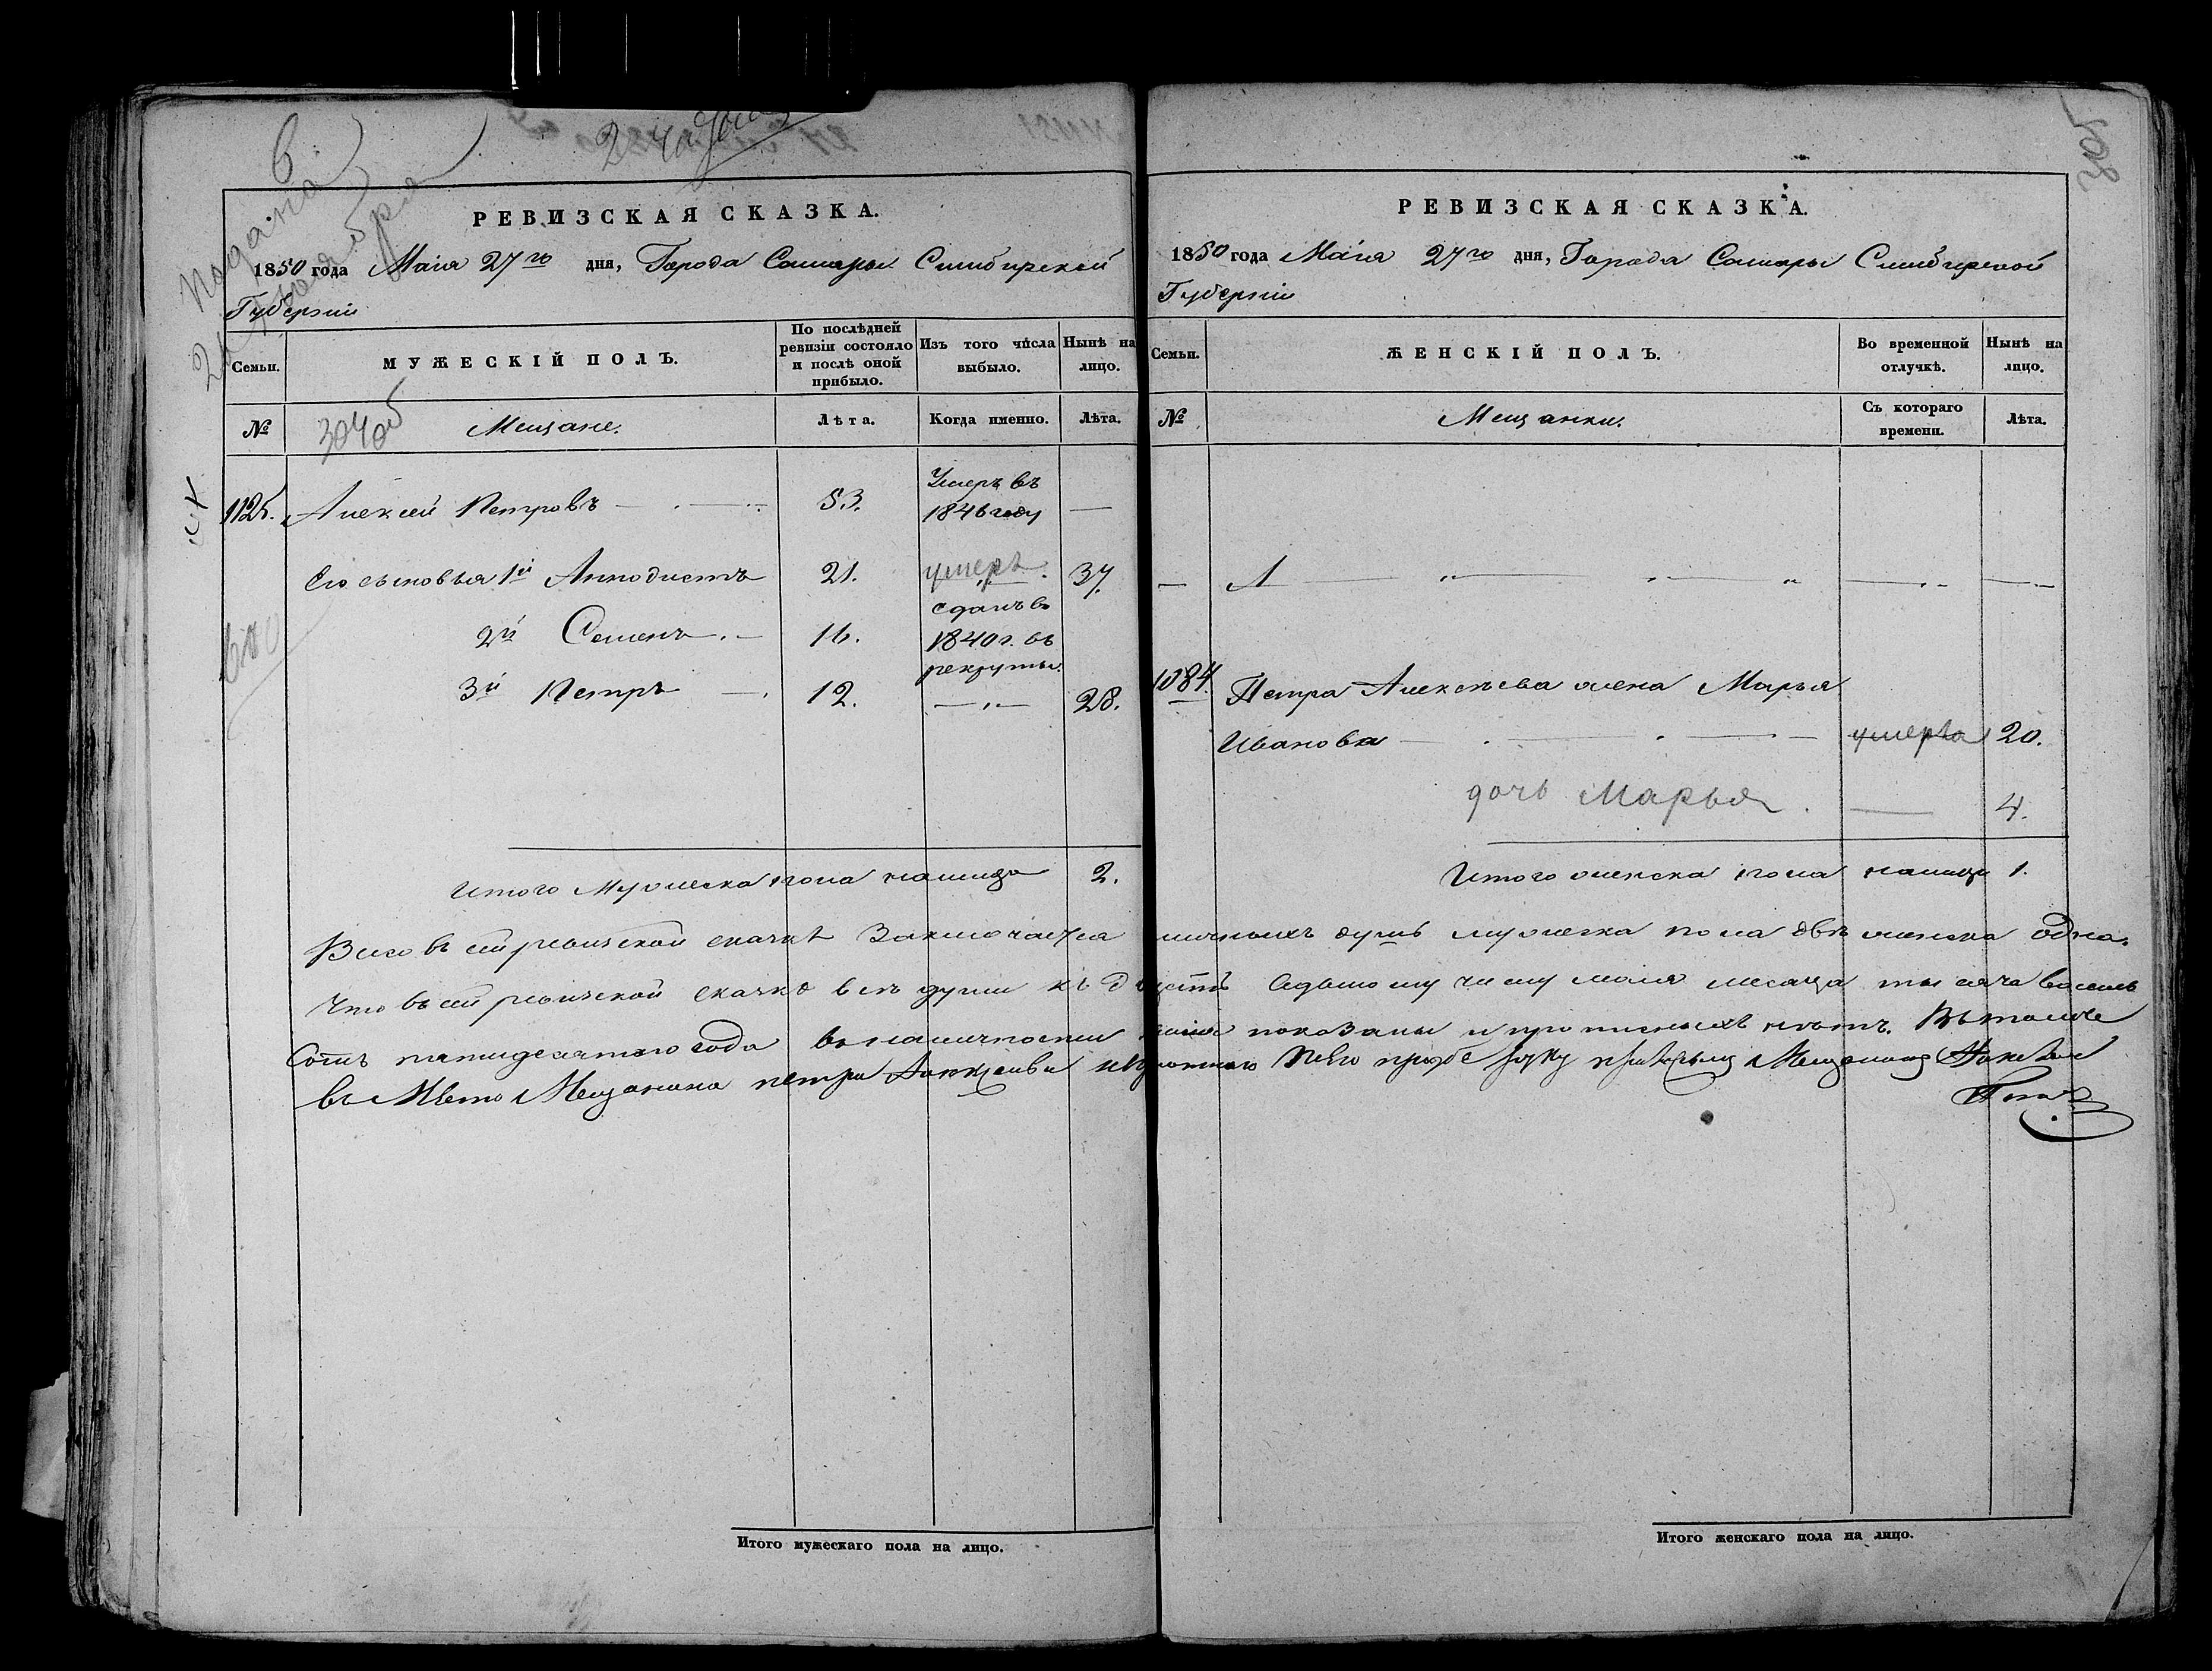 подана
РЕВИЗСКАЯ СКАЗКА.
1850 года Маія 27го дня, Города Самары Симбирской
Губерніи
Семьи. МУЖЕСКІЙ ПОЛЪ. По послѣдней ревизіи состояло и послѣ оной прибыло. Изъ того числа выбыло. Нынѣ на лицо.
№ Мещане. Лѣта. Когда именно. Лѣта.
1125. Алексей Петровъ 53. Умеръ въ 1846 году —
Его сыновья 1й Анподистъ 21. умеръ. 37.
2й Семенъ 16. сданъ въ 1840 г. въ рекруты.
3й Петръ 12. —„— 28.
Итого Мужеска пола налицо 2.
РЕВИЗСКАЯ СКАЗКА.
1850 года Маія 27го дня, Города Самары Симбирской
Губерніи
Семьи. ЖЕНСКІЙ ПОЛЪ. Во временной отлучкѣ. Нынѣ на лицо.
№ Мещанки. Съ котораго времени. Лѣта.
1084. Петра Алексѣева жена Марья
Иванова умерла 20.
дочь Марья. — 4.
Итого женска пола налицо 1.
Всего въ сей ревизской сказкѣ Заключается наличныхъ душъ мужеска пола двѣ женска одна.
Что въ сей ревизской сказкѣ всѣ души къ Двадцать Седьмому числу маія месяца тысяча восемь
Сотъ пятидесятаго года въ наличности показаны и прописныхъ нѣтъ. Въ томъ
въ Место Мещанина петра неграмотнаго по Его прозбе руку приложилъ Мещанинъ
Итого мужескаго пола на лицо.
Итого женскаго пола на лицо.